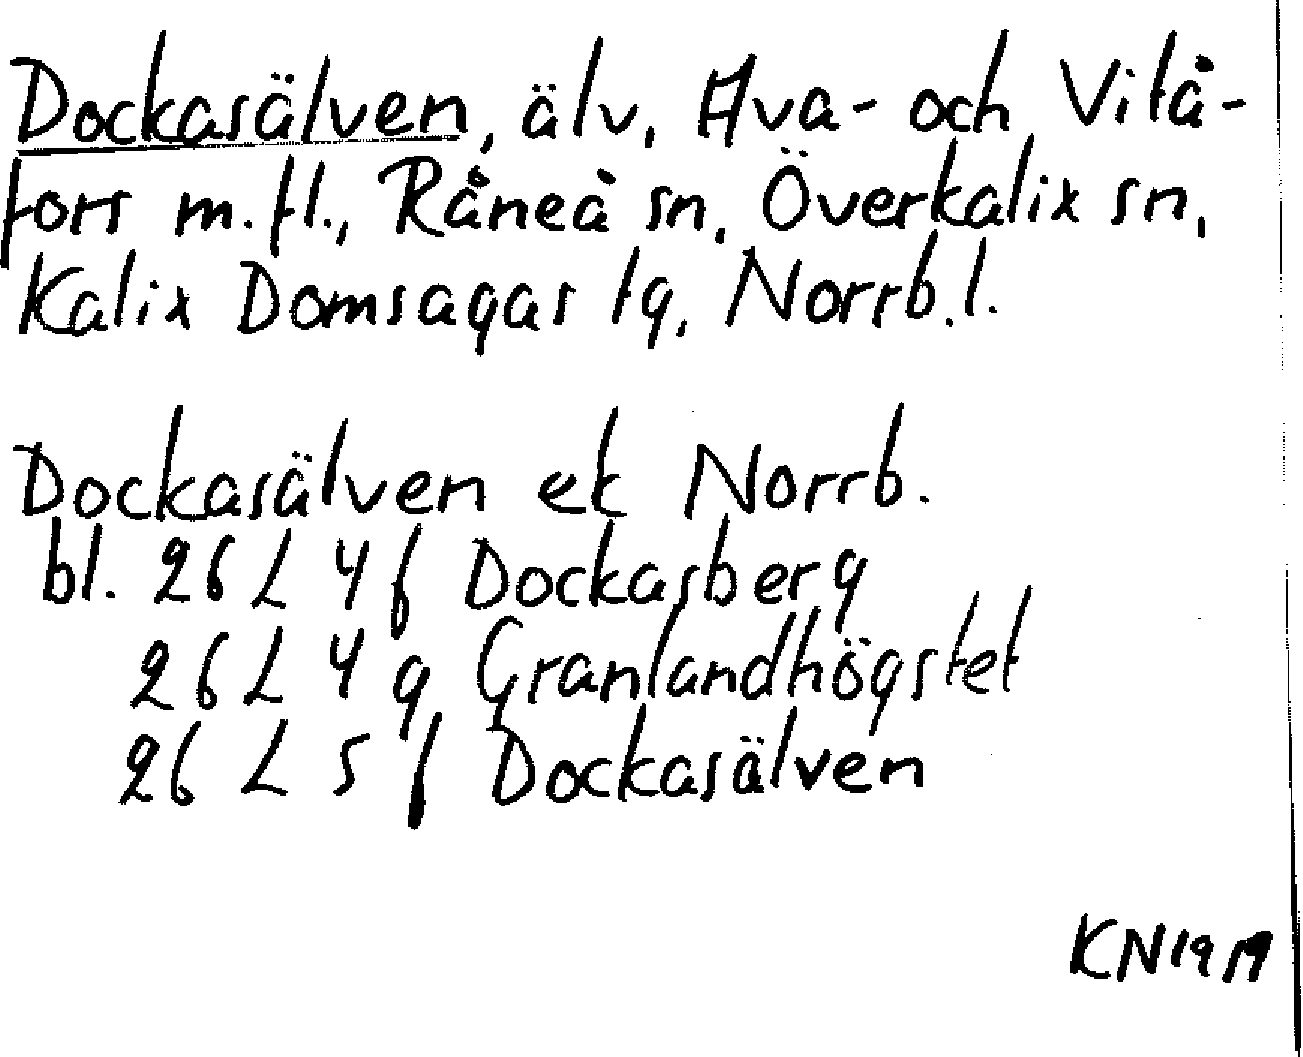 Dockasälven, älv, Hva- och Vitå-
fors m.fl., Råneå sn, Överkalix sn,
Kalix Domsagas tg, Norrb.l.
Dockasälven ek Norrb.
bl. 26 L 4 f Dockasberg
26 L 4 g Granlandhögstet
26 L 5 f Dockasälven